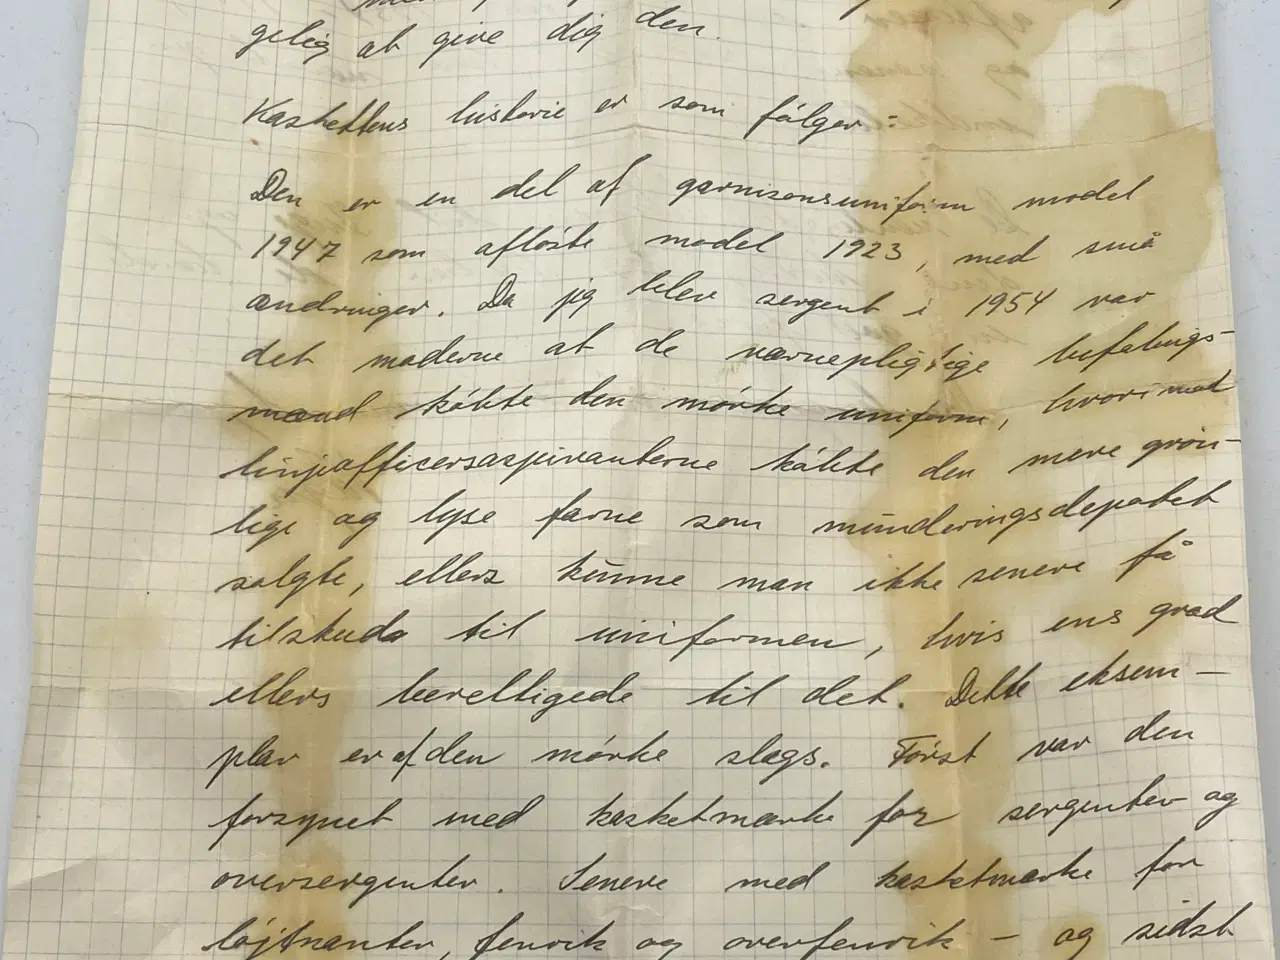 gelig at give dig den.
Kaskettens historie er som følger:
Den er en del af garnisonsuniform model
1947 som afløste model 1923, med små
ændringer. Da jeg blev sergent i 1954 var
det moderne at de værnepligtige befalings-
mænd købte den mørke uniform, hvorimod
linjeofficersaspiranterne købte den mere grøn-
lige og lyse farve som munderingsdepotet
solgte, ellers kunne man ikke senere få
tilskud til uniformen, hvis ens grad
ellers berettigede til det. Dette eksem-
plar er af den mørke slags. Først var den
forsynet med kasketmærke for sergenter og
oversergenter. Senere med kasketmærke for
løjtnanter, fenrik og overfenrik - og sidst